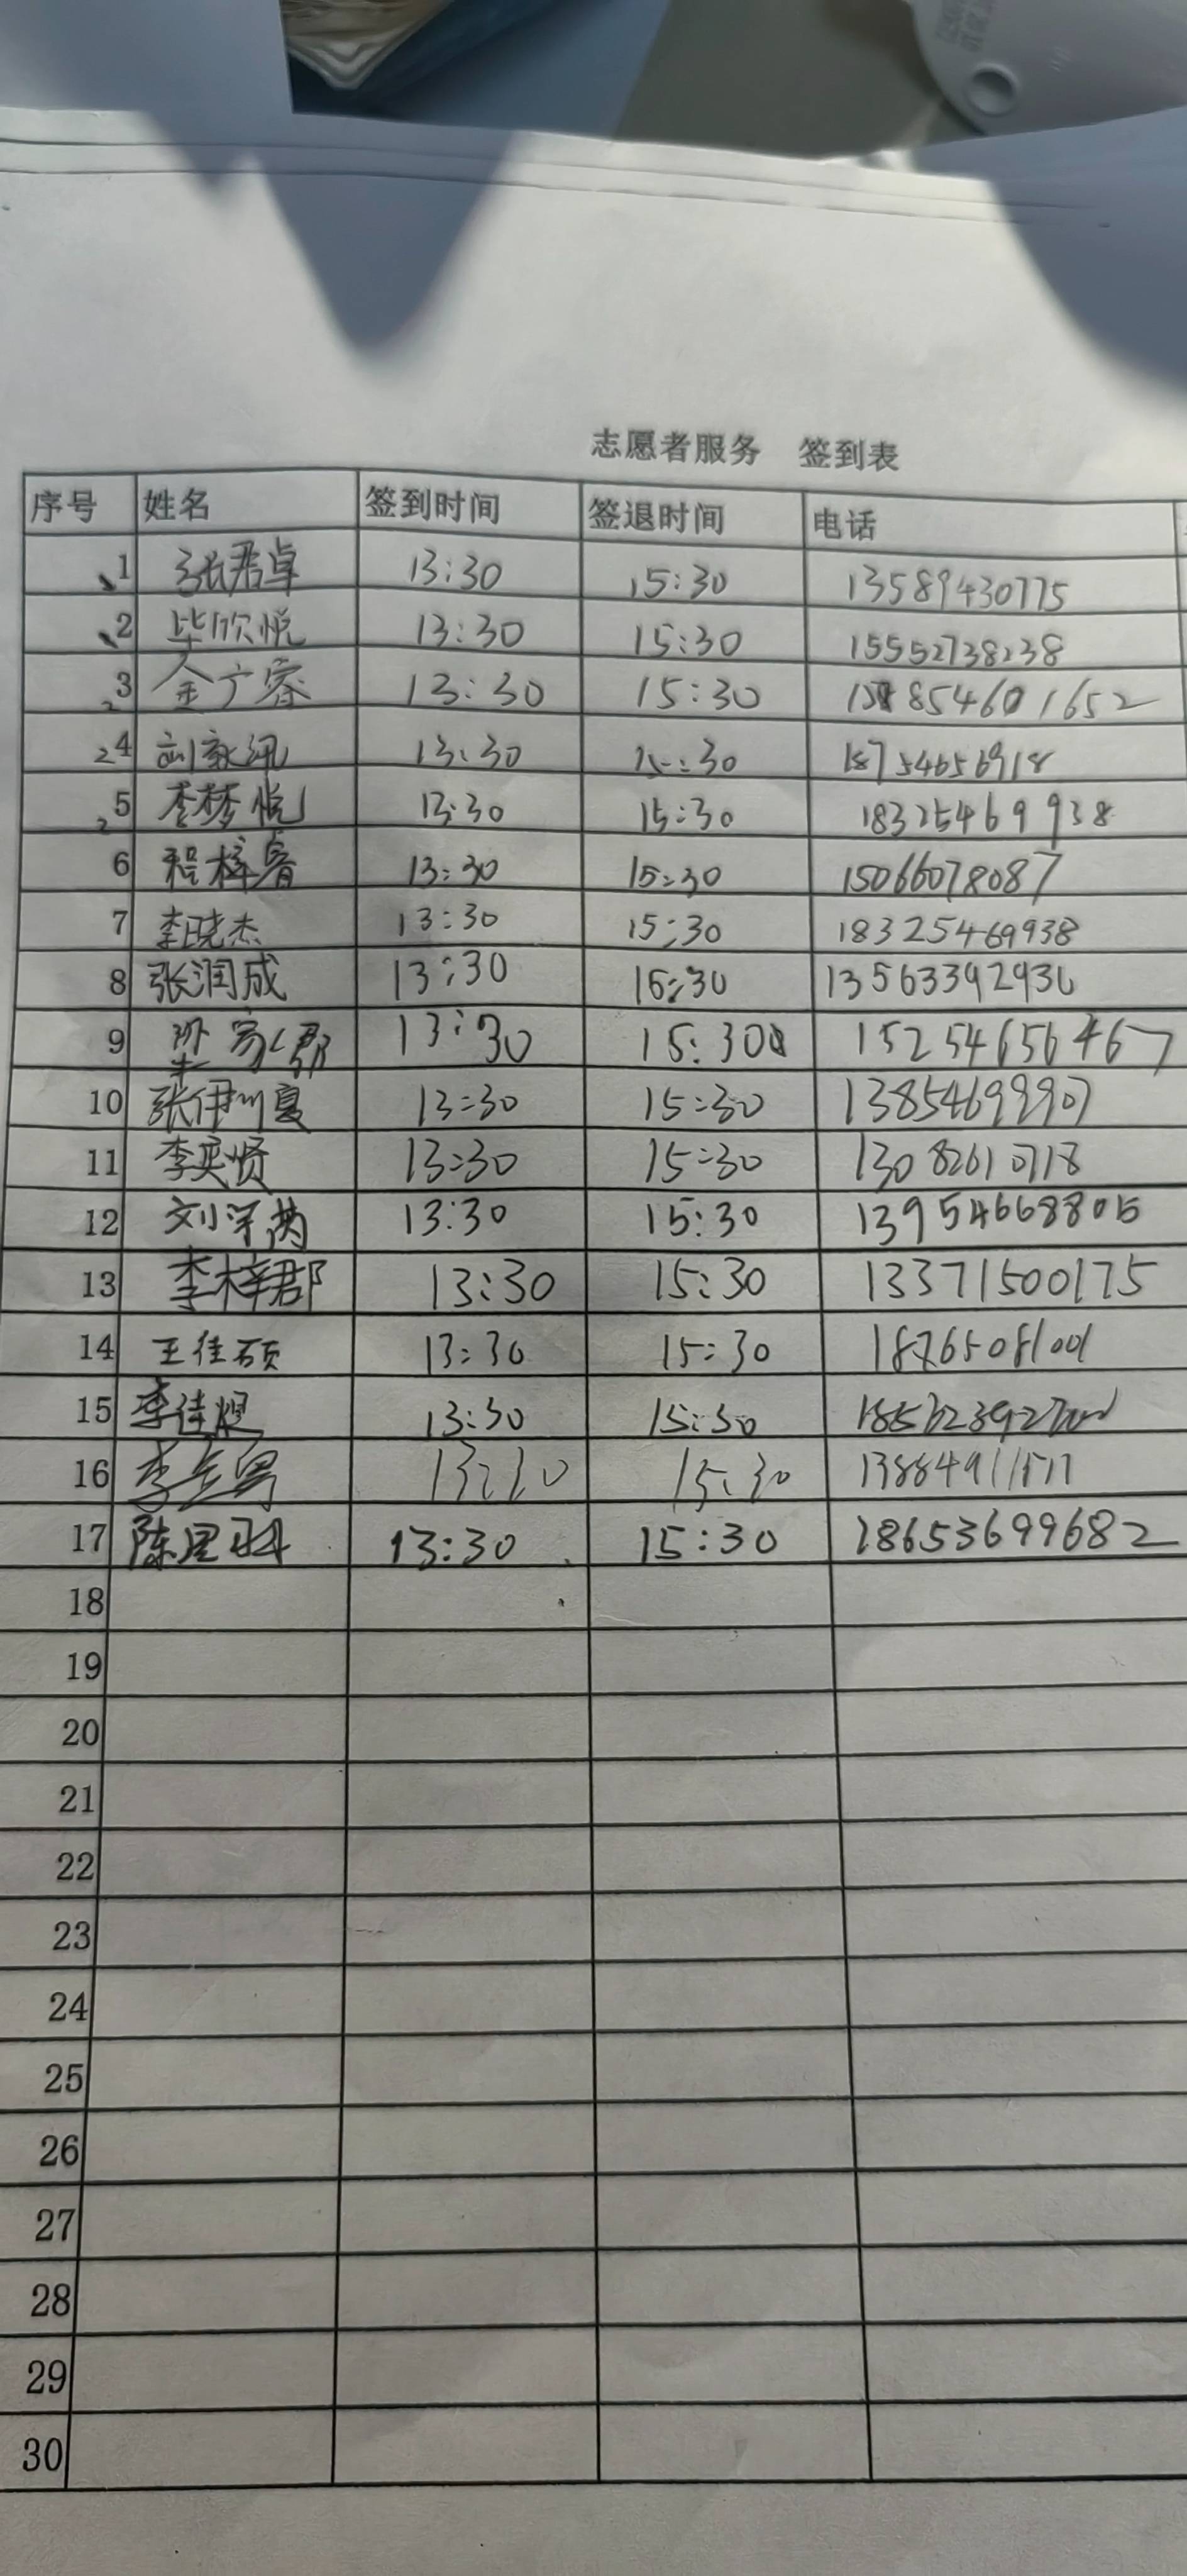 志愿者服务 签到表
序号 姓名 签到时间 签退时间 电话
1 张君卓 13:30 15:30 13589430775
2 毕欣悦 13:30 15:30 15552738238
3 金广睿 13:30 15:30
4 13:30 15:30 18754656918
5 李梦悦 13:30 15:30 18325469938
6 程梓睿 13:30 15:30 15066078087
7 李晓杰 13:30 15:30 18325469938
8 张润成 13:30 15:30 13563392936
9 13:30 15:30 15254656467
10 张伊夏 13:30 15:30 13854699907
11 李奕贤 13:30 15:30 13082610718
12 13:30 15:30 13954668805
13 李梓郡 13:30 15:30 13371500175
14 王佳硕 13:30 15:30 18765081001
15 李佳煜 13:30 15:30
16 13:30 15:30
17 13:30 15:30 18653699682
18
19
20
21
22
23
24
25
26
27
28
29
30